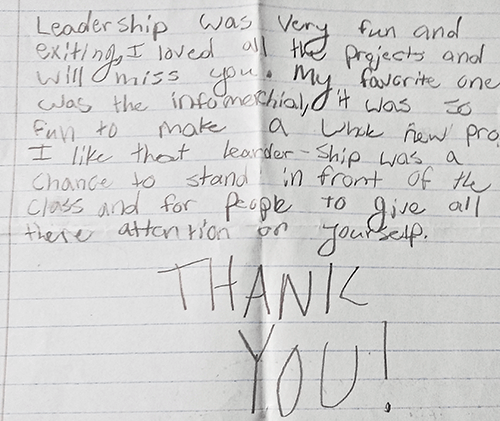 Leadership was very fun and
exiting, I loved all the projects and
will miss you. My favorite one
was the infomerchial, it was so
fun to make a whole new pro
I like that leander-ship was a
chance to stand in front of the
class and for people to give all
there attention on yourself.
THANK
YOU!